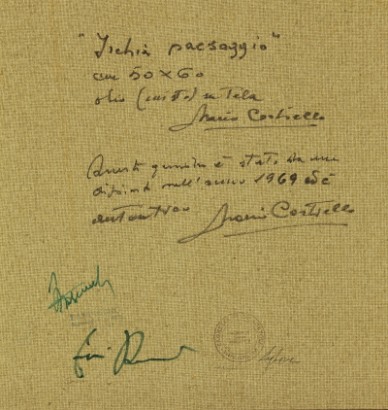 "Ischia paesaggio"
cm 50x60
olio (misto) su tela
Mario Cortiello
Questo quadro è stato da me
dipinto nell'anno 1969 ed è
autentico Mario Cortiello